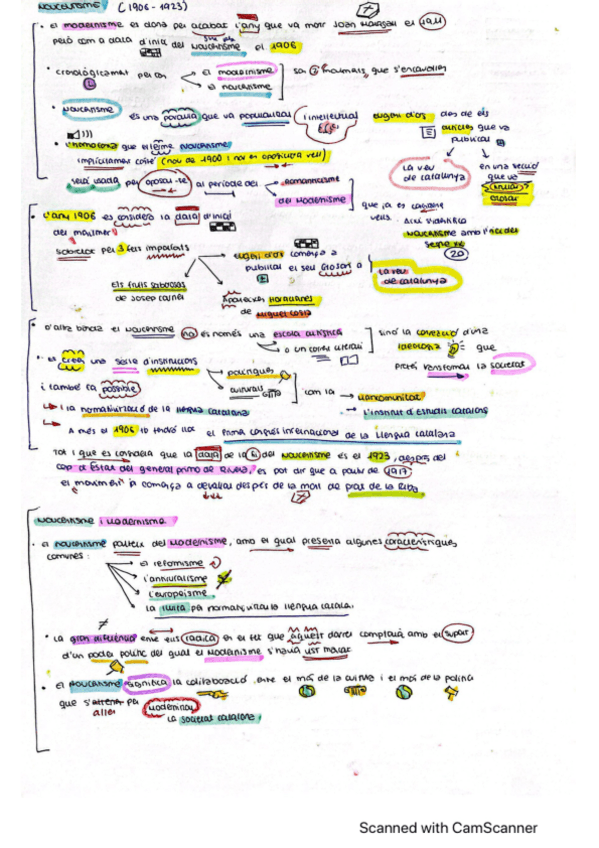 NOUCENTISME (1906-1923)
• El modernisme es dona per acabat l'any que va morir Joan Maragall el 1911
però com a data d'inici del Noucentisme el 1906
• Cronològicament per tan
el modernisme
el noucentisme
són moviments que s'encavallen
• NOUCENTISME
és una paraula que va popularitzar
l'intel·lectual
Eugeni d'Ors
des de els
articles que va
publicar
La veu
de Catalunya
en una secció
que va
Glosari
que el terme Noucentisme
implícitament (nou de 1900 i nou en oposició a vell)
per oposar-se al període del
Romanticisme
del Modernisme
que ja es
vells. Així s'identifica
Noucentisme amb l'inici del
segle XX
20
L'any 1906 es considera la data d'inici
del moviment
sobretot per 3 fets importants
Els fruits saborosos
de Josep Carner
Apareixen Horacianes
de Miquel Costa
Eugeni d'Ors comença a
publicar el seu Glosari a
La veu
de Catalunya
• D'altra banda el Noucentisme no és només una escola artística
o un corrent literari
sinó la d'una
ideologia que
pretén transformar la societat
• Es crea una sèrie d'institucions
polítiques
culturals
com la
Mancomunitat
l'institut d'Estudis Catalans
i també fa possible
la normativització de la llengua catalana
A més el 1906 té lloc el Primer congrés internacional de la Llengua Catalana
Tot i que es considera que la data de la fi del Noucentisme és el 1923, després del
cop d'Estat del general Primo de Rivera, es pot dir que a partir de 1917
el moviment ja comença a davallar després de la mort de Prat de la Riba
Noucentisme i Modernisme
• El noucentisme parteix del Modernisme, amb el qual presenta algunes característiques
comunes:
El reformisme
l'antiruralisme
l'europeisme
la lluita per normativitzar la llengua catalana.
• La gran diferència entre radica en el fet que aquest darrer comptarà amb el suport
d'un poder polític del qual el Modernisme s'havia vist mancat
• El Noucentisme significa la col·laboració entre el món de la cultura i el món de la política
que s'
modernitzar
la societat catalana.
Scanned with CamScanner